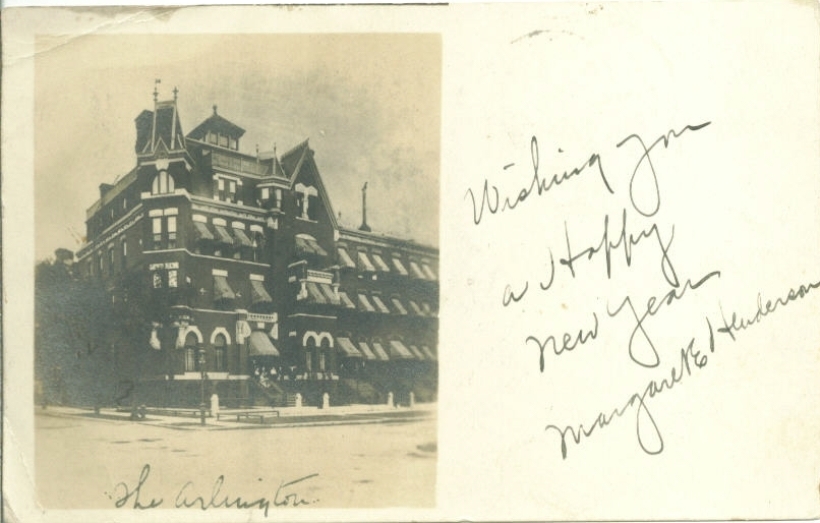 Wishing you
a Happy
New Year
Margaret E Henderson
The Arlington